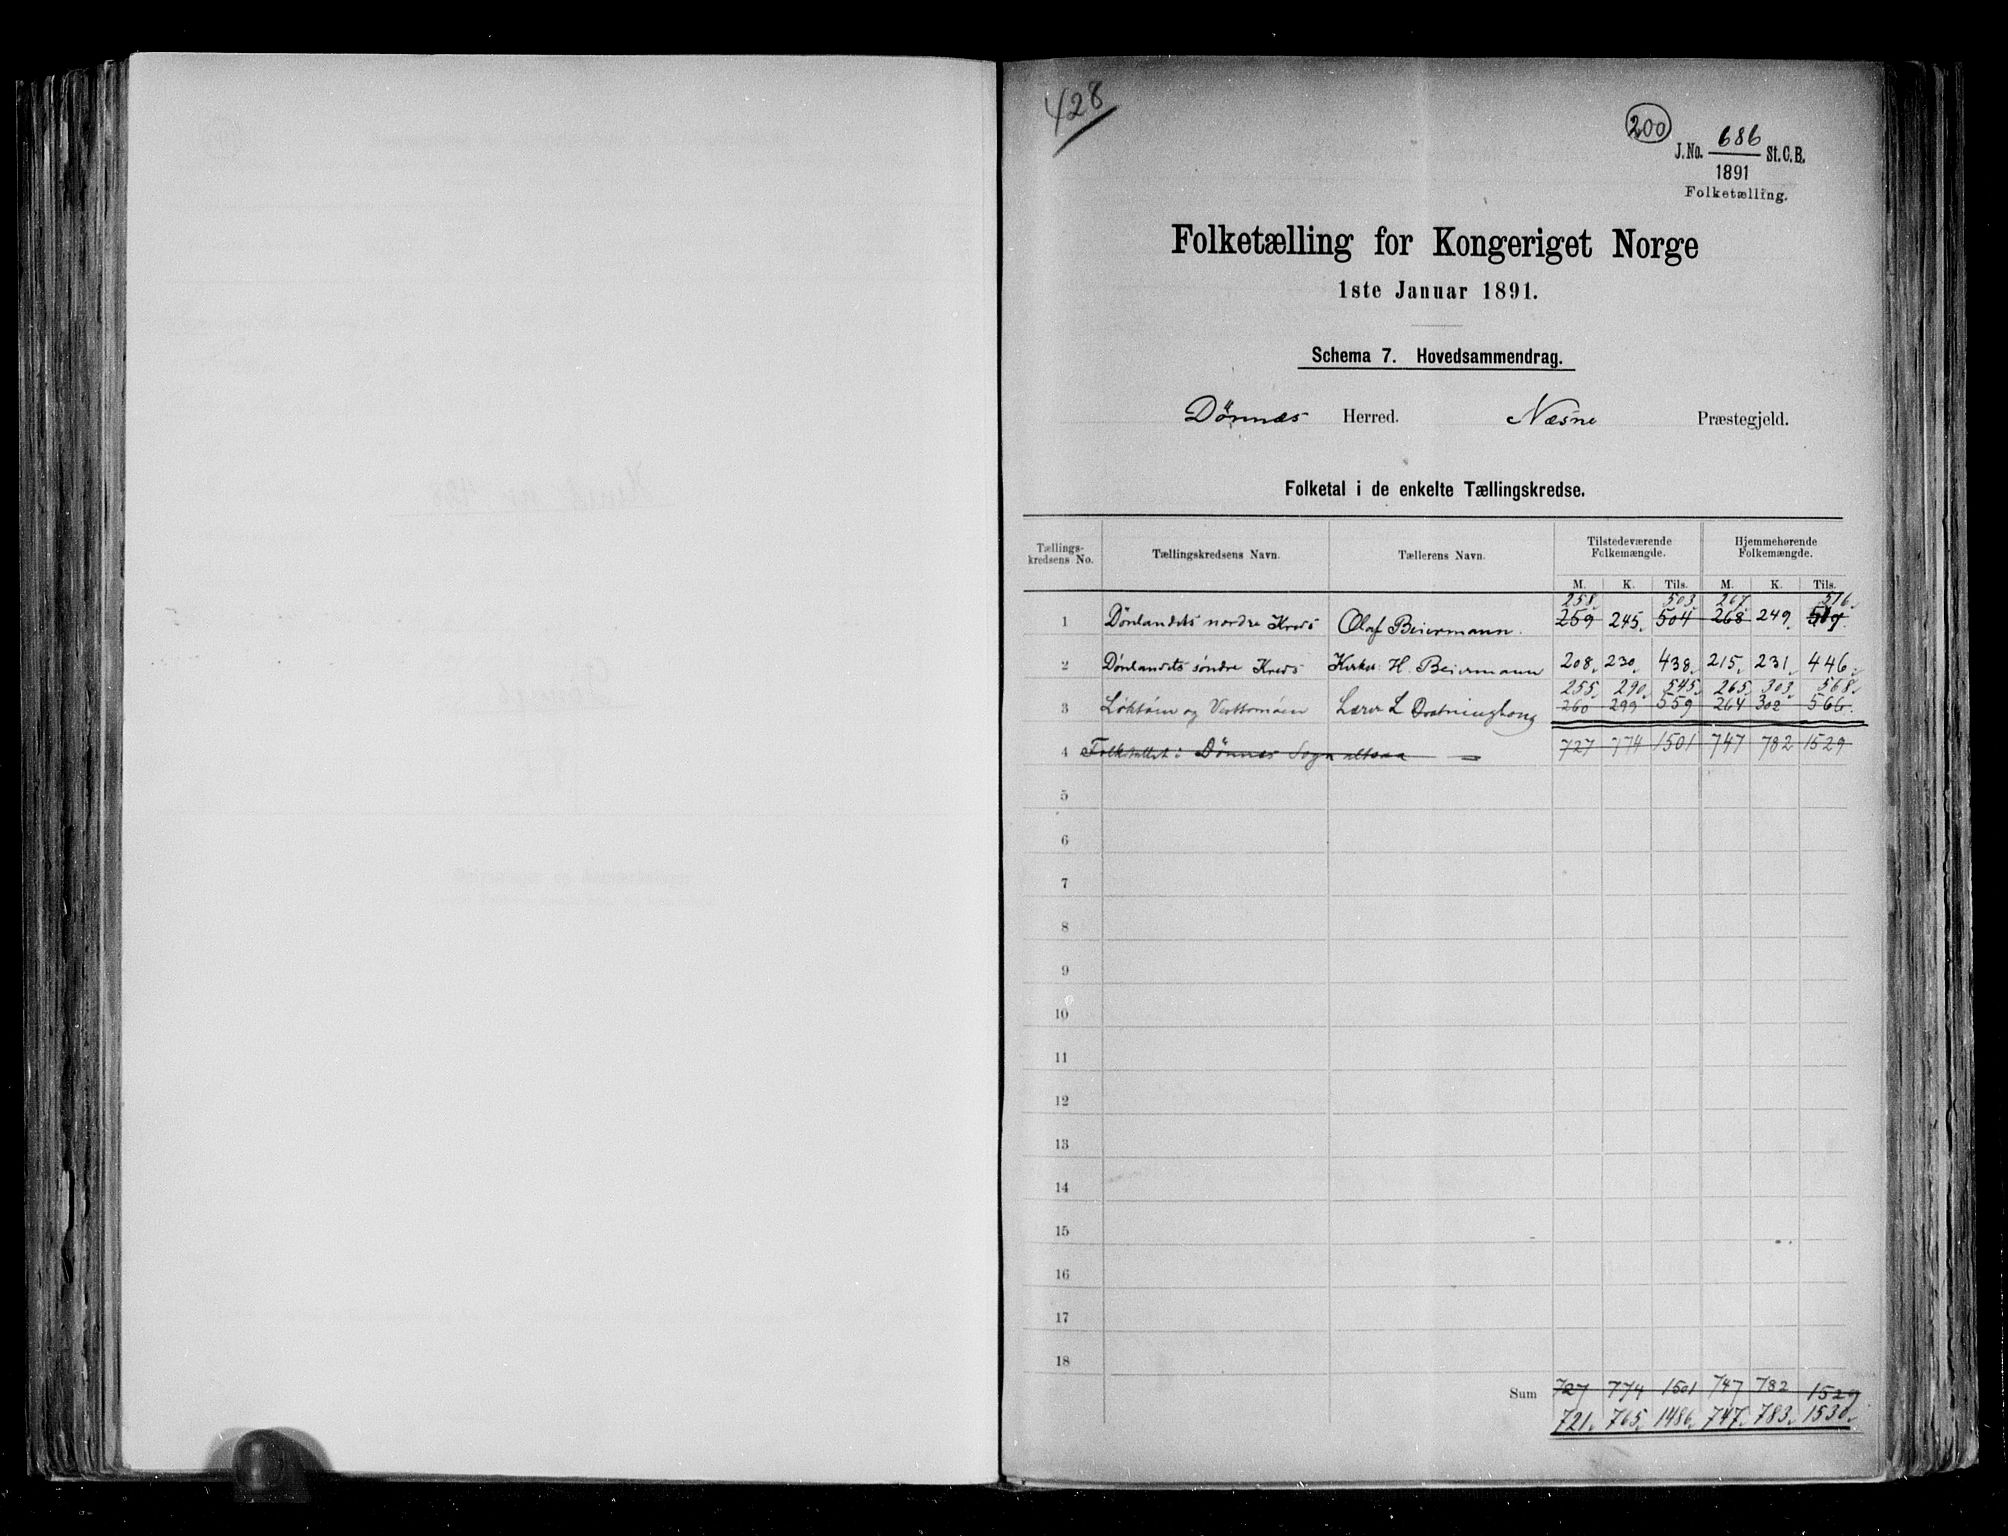 428
200
J. No. 686 St. C. B.
1891
Folketælling.
Folketælling for Kongeriget Norge
1ste Januar 1891.
Schema 7. Hovedsammendrag.
Dønnæs Herred. Næsne Præstegjeld.
Folketal i de enkelte Tællingskredse.
Tællings-kredsens No. Tællingskredsens Navn. Tællerens Navn. Tilstedeværende Folkemængde. Hjemmehørende Folkemængde.
M. K. Tils. M. K. Tils.
258 503 267 516
1 Dønlandets nordre Kreds Olaf Beiermann. 259 245 504 268 249
2 Dønlandets søndre Kreds H. Beiermann 208 230 438 215 231 446
255 290 545 265 303 568
3 Løktøen og Lærer L 260 299 559 264 302 566
4 Folketallet i Dønnæs Sogn altsaa 727 774 1501 747 782 1529
5
6
7
8
9
10
11
12
13
14
15
16
17
18
Sum 727 774 1501 747 782 1529
721 765 1486 747 783 1530